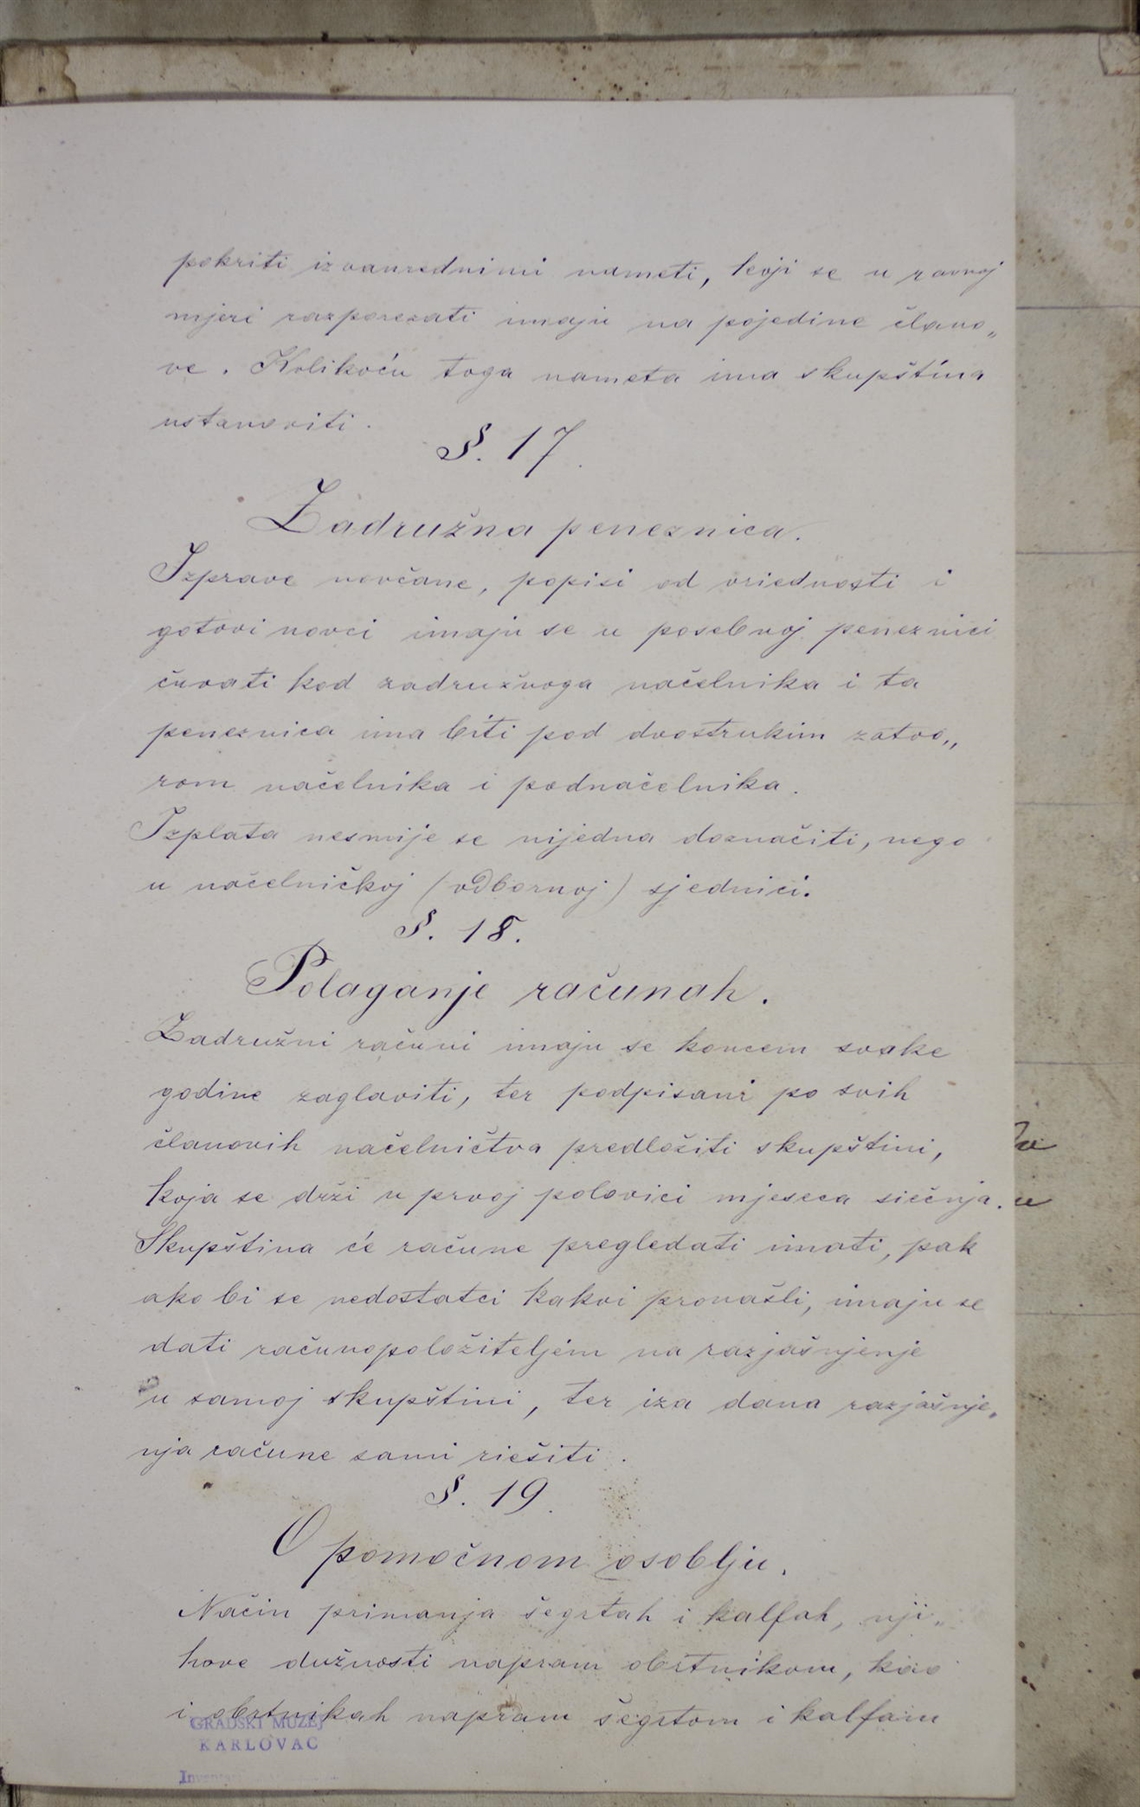 pokriti izvanrednimi nameti, koji se u ravnoj
mjeri razporezati imaju na pojedine člano„
ve. Kolikoću toga nameta ima skupština
ustanoviti.
§. 17.
Zadružna peneznica.
Izprave novčane, popisi od vriednosti i
gotovi novci imaju se u posebnoj peneznici
čuvati kod zadružnoga načelnika i ta
peneznica ima biti pod dvostrukim zatvo„
rom načelnika i podnačelnika.
Izplata nesmije se nijedna doznačiti, nego
u načelničkoj (odbornoj) sjednici.
§. 18.
Polaganje računah.
Zadružni računi imaju se koncem svake
godine zaglaviti, ter podpisani po svih
članovih načelničtva predložiti skupštini,
koja se drži u prvoj polovici mjeseca siečnja.
Skupština će račune pregledati imati, pak
ako bi se nedostatci kakvi pronašli, imaju se
dati računopoložiteljem na razjašnjenje
u samoj skupštini, ter iza dana razjašnje„
nja račune sami riešiti.
§. 19.
O pomočnom osoblju.
Način primanja šegrtah i kalfah, nji„
hove dužnosti napram obrtnikom, kao
i obrtnikah napram šegrtom i kalfam
GRADSKI MUZEJ
KARLOVAC